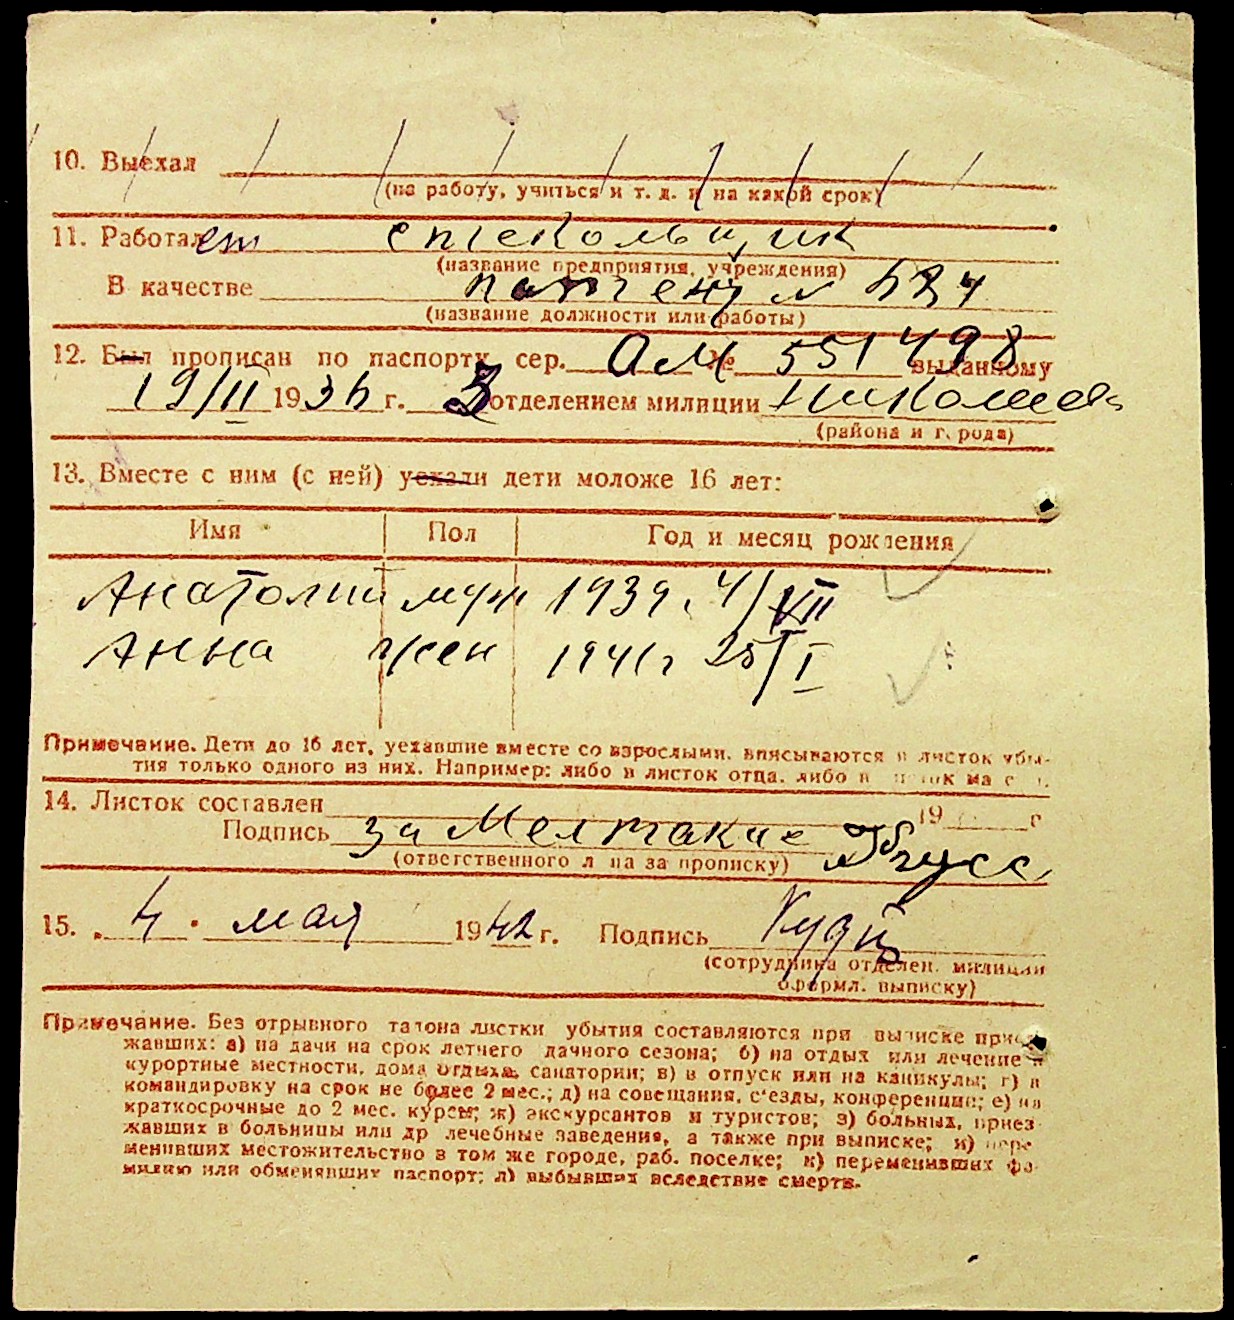 10. Выехал
(на работу, учиться и т. д. и на какой срок)
11. Работает стекольщик
(название предприятия, учреждения)
В качестве патент № 524
(название должности или работы)
12. Был прописан по паспорту сер. АМ № 551498 выданному
19/II 1936 г. 3 отделением милиции Николаев
(района и города)
13. Вместе с ним (с ней) уехали дети моложе 16 лет:
Имя Пол Год и месяц рождения
Анатолий муж 1939 г. 4/VII
Анна жен 1941 г 25/I
Примечание. Дети до 16 лет, уехавшие вместе со взрослыми, вписываются в листок убы-
тия только одного из них. Например: либо в листок отца, либо в листок матери.
14. Листок составлен 19 г
Подпись за
(ответственного лица за прописку)
15. „ 4 " мая 1942 г. Подпись
(сотрудника отделен. милиции
оформл. выписку)
Примечание. Без отрывного талона листки убытия составляются при выписке приез-
жавших: а) на дачи на срок летнего дачного сезона; б) на отдых или лечение в
курортные местности, дома отдыха, санатории; в) в отпуск или на каникулы; г) в
командировку на срок не более 2 мес.; д) на совещания, с'езды, конференции; е) на
краткосрочные до 2 мес. курсы; ж) экскурсантов и туристов; з) больных, приез-
жавших в больницы или др лечебные заведения, а также при выписке; и) пере-
менивших местожительство в том же городе, раб. поселке; к) переменивших фа-
милию или обменявших паспорт; л) выбывших вследствие смерти.